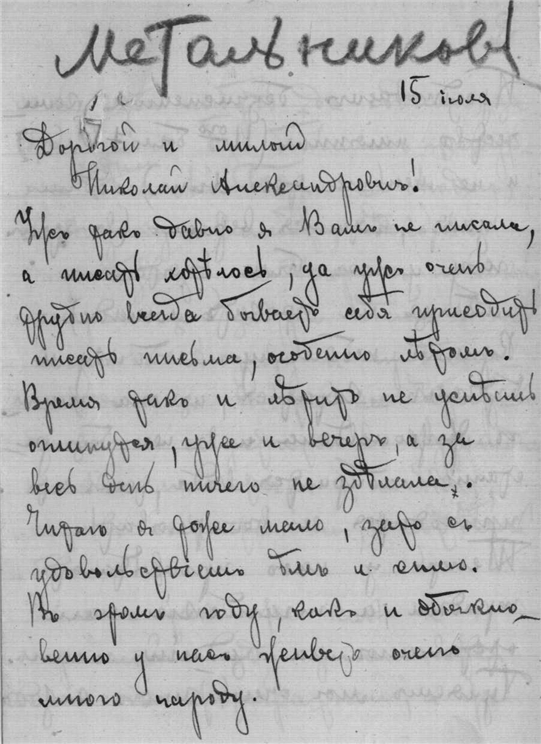 Метальников
15 июля
Дорогой и милый
Николай Александровичъ!
Ужъ такъ давно я Вамъ не писала,
а писать хотѣлось, да ужъ очень
трудно всегда бываетъ себя присадить
писать письма, особенно лѣтомъ.
Время такъ и лѣтитъ не успѣешь
оглянутся, уже и вечеръ, а за
весь день ничего не здѣлала.
Читаю я тоже мало, зато съ
удовольствіемъ ѣмъ и сплю.
Въ этомъ году, какъ и обыкно-
венно у насъ живетъ очень
много народу.